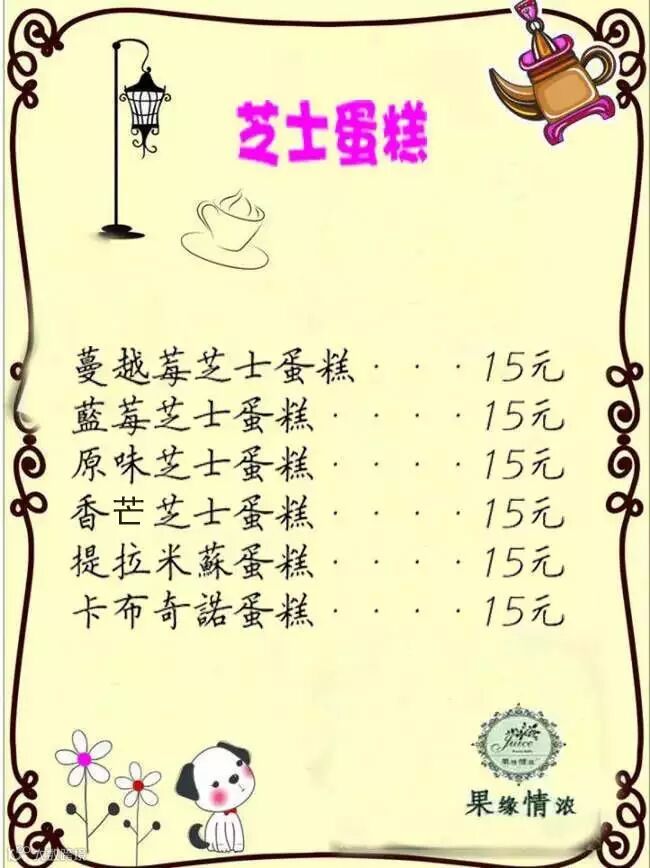 芝士蛋糕
蔓越莓芝士蛋糕····15元
藍莓芝士蛋糕····15元
原味芝士蛋糕····15元
香芒芝士蛋糕····15元
提拉米蘇蛋糕····15元
卡布奇諾蛋糕····15元
Juice
果缘情浓
果缘情浓